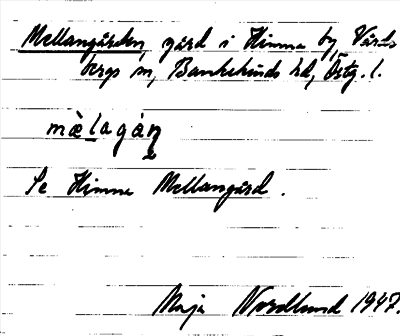 Mellangården, gård i Himna by, Vårds
bergs sn, Bankekinds hd, Östg. l.
mὰlagån
Se Himna Mellangård.
Maja Nordlund 1947.